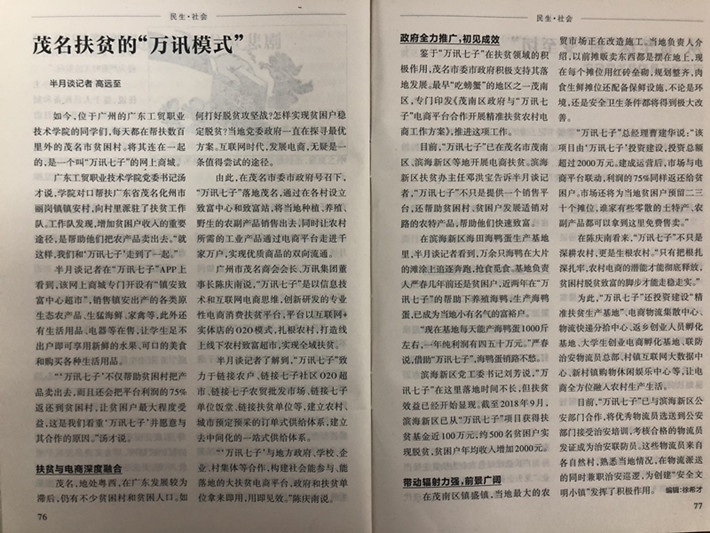 民生·社会
茂名扶贫的“万讯模式”
半月谈记者 高远至
如今,位于广州的广东工贸职业
技术学院的同学们,每天都在帮扶数百
里外的茂名市贫困村。将其连在一起
的,是一个叫“万讯七子”的网上商城。
广东工贸职业技术学院党委书记汤
才说,学院对口帮扶广东省茂名化州市
丽岗镇镇安村,向村里派驻了扶贫工作
队。工作队发现,增加贫困户收入的重要
途径,是帮助他们把农产品卖出去。“就
这样,我们和‘万讯七子’走到了一起。”
半月谈记者在“万讯七子”APP上
看到,该网上商城专门开设有“镇安致
富中心超市”,销售镇安出产的各类原
生态农产品、生猛海鲜、家禽等,此外还
有生活用品、电器等在售,让学生足不
出户即可享用新鲜的水果、可口的美食
和购买各种生活用品。
“‘万讯七子’不仅帮助贫困村把产
品卖出去,而且还会把平台利润的75%
返还到贫困村,让贫困户最大程度受
益,这是我们看重‘万讯七子’并愿意与
其合作的原因。”汤才说。
扶贫与电商深度融合
茂名,地处粤西,在广东发展较为
滞后,仍有不少贫困村和贫困人口,如
何打好脱贫攻坚战?怎样实现贫困户稳
定脱贫?当地党委政府一直在探寻最优
方案。互联网时代,发展电商,无疑是一
条值得尝试的途径。
由此,在茂名市委市政府号召下,
“万讯七子”落地茂名,通过在各村设立
致富中心和致富站,将当地种植、养殖、
野生的农副产品销售出去,同时让农村
所需的工业产品通过电商平台走进千
家万户,实现优质商品的双向流通。
广州市茂名商会会长、万讯集团董
事长陈庆南说,“万讯七子”是以信息技
术和互联网电商思维,创新研发的专业
性电商消费扶贫平台,平台以互联网+
实体店的O2O模式,扎根农村,打造线
上线下农村致富超市,实现全域扶贫。
半月谈记者了解到,“万讯七子”致
力于链接农户、链接七子社区O2O超
市、链接七子农贸批发市场、链接七子
单位饭堂、链接扶贫单位等,建立农村、
城市预定预采的订单式供给体系,建立
去中间化的一站式供给体系。
“‘万讯七子’与地方政府、学校、企
业、村集体等合作,构建社会能参与、能
落地的大扶贫电商平台,政府和扶贫单
位拿来即用,用即见效。”陈庆南说。
76
民生·社会
政府全力推广,初见成效
鉴于“万讯七子”在扶贫领域的积
极作用,茂名市委市政府积极支持其落
地发展。最早“吃螃蟹”的地区之一茂南
区,专门印发《茂南区政府与“万讯七
子”电商平台合作开展精准扶贫农村电
商工作方案》,推进这项工作。
目前,“万讯七子”已在茂名市茂南
区、滨海新区等地开展电商扶贫。滨海
新区扶贫办主任邓洪宝告诉半月谈记
者,“万讯七子”不只是提供一个销售平
台,还帮助贫困村、贫困户发展适销对
路的农特产品,帮助他们快速致富。
在滨海新区海田海鸭蛋生产基地
里,半月谈记者看到,万余只海鸭在大片
的滩涂上追逐奔跑,抢食觅食。基地负责
人严春几年前还是贫困户,近两年在“万
讯七子”的帮助下养殖海鸭,生产海鸭
蛋,已成为当地小有名气的富裕户。
“现在基地每天能产海鸭蛋1000斤
左右,一年纯利润有四五十万元。”严春
说,借助“万讯七子”,海鸭蛋销路不愁。
滨海新区党工委书记刘芳说,“万
讯七子”在这里落地时间不长,但扶贫
效益已经开始显现。截至2018年9月,
滨海新区已从“万讯七子”项目获得扶
贫基金近100万元,约500名贫困户实
现脱贫,贫困户年均收入增加2000元。
带动辐射力强,前景广阔
在茂南区镇盛镇,当地最大的农
贸市场正在改造施工。当地负责人介
绍,以前摊贩卖东西都是摆在地上,现
在每个摊位用红砖垒砌,规划整齐,肉
食生鲜摊位还配备保鲜设施,不论是环
境,还是安全卫生条件都将得到极大改
善。
“万讯七子”总经理曹建华说:“该
项目由‘万讯七子’投资建设,投资总额
超过2000万元。建成运营后,市场与电
商平台联动,利润的75%同样返还给贫
困户。市场还将为当地贫困户预留二三
十个摊位,谁家有些零散的土特产、农
副产品都可以拿到这里免费售卖。”
在陈庆南看来,“万讯七子”不只是
深耕农村,更是生根农村。“只有把根扎
深扎牢,农村电商的潜能才能彻底释放,
贫困村脱贫致富的脚步才能走稳走实。”
为此,“万讯七子”还投资建设“精
准扶贫生产基地”、电商物流集散中心、
物流快递分拾中心、返乡创业人员孵化
基地、大学生创业电商孵化基地、联防
治安物流员总部、村镇互联网大数据中
心、新村镇购物休闲娱乐中心等,让电
商全方位融入农村生产生活。
目前,“万讯七子”已与滨海新区公
安部门合作,将优秀物流员选送到公安
部门接受治安培训,考核合格的物流员
发证成为治安联防员。这些物流员来自
各自然村,熟悉当地情况,在物流派送
的同时兼职治安巡逻,为创建“安全文
明小镇”发挥了积极作用。 编辑:徐希才
77